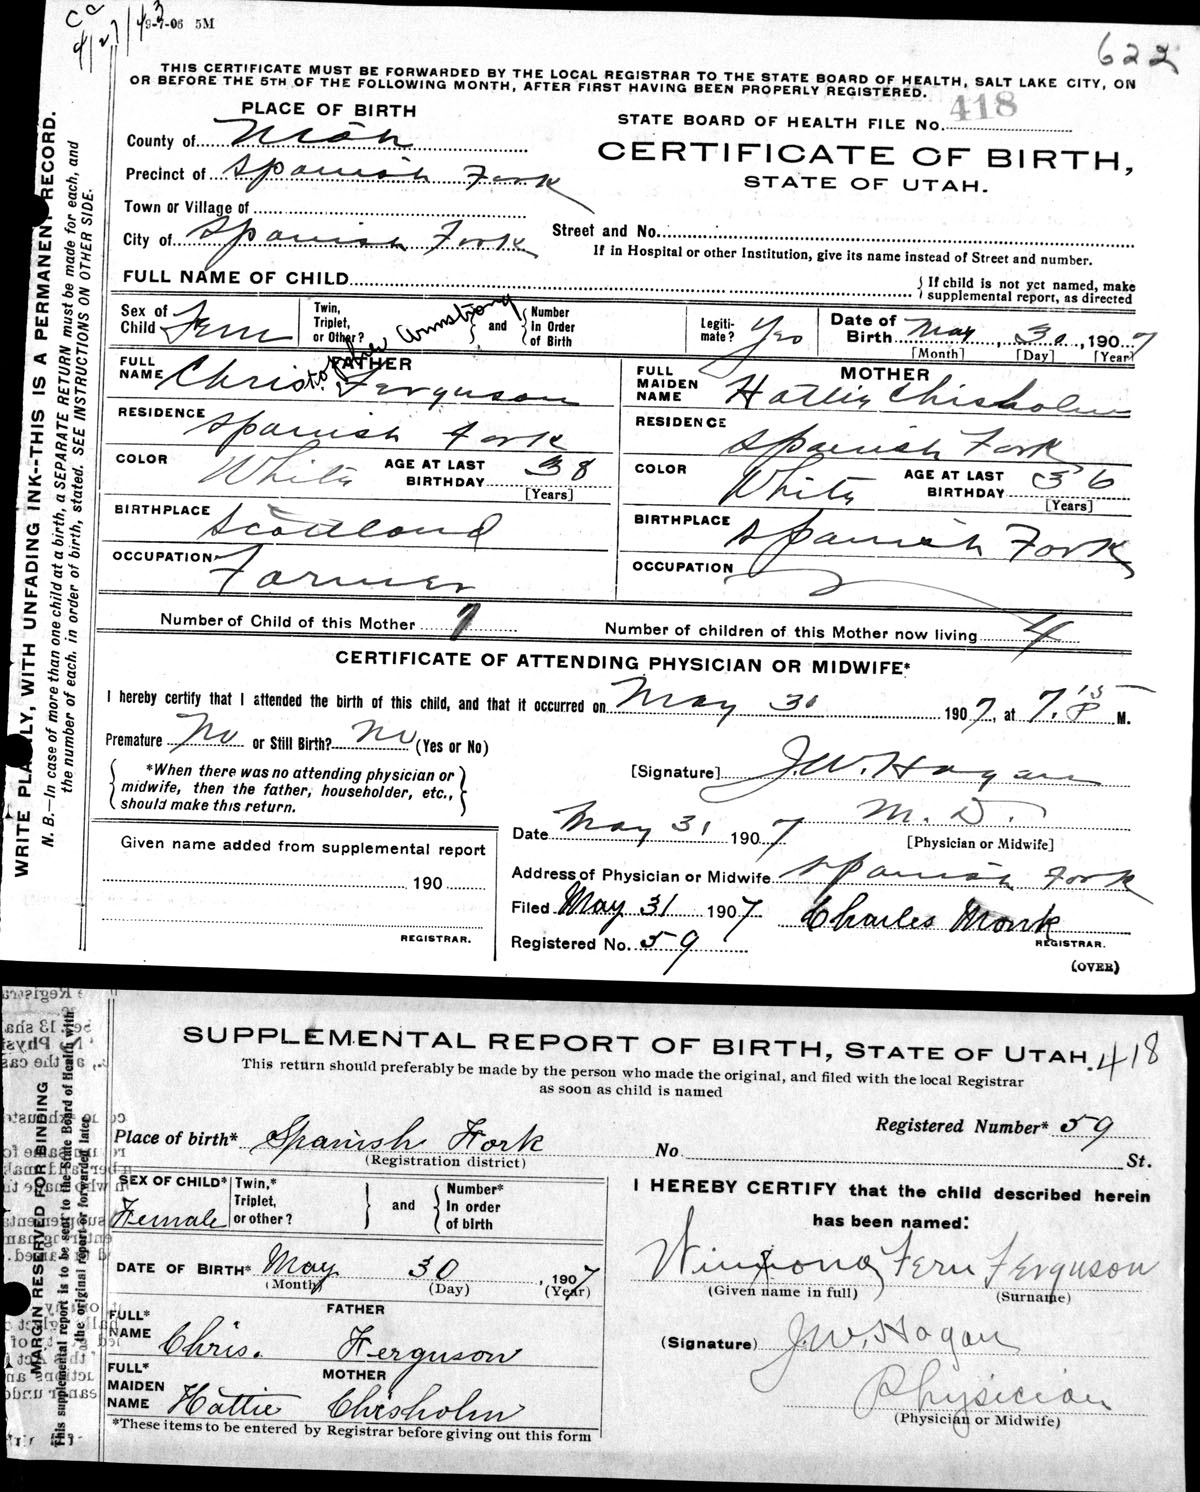 ca
4/27/43
9-7-06 5M
622
THIS CERTIFICATE MUST BE FORWARDED BY THE LOCAL REGISTRAR TO THE STATE BOARD OF HEALTH, SALT LAKE CITY, ON
OR BEFORE THE 5TH OF THE FOLLOWING MONTH, AFTER FIRST HAVING BEEN PROPERLY REGISTERED.
PLACE OF BIRTH
STATE BOARD OF HEALTH FILE No. 418
County of Utah
CERTIFICATE OF BIRTH,
STATE OF UTAH.
Precinct of Spanish Fork
Town or Village of
City of Spanish Fork
Street and No.
If in Hospital or other Institution, give its name instead of Street and number.
FULL NAME OF CHILD
If child is not yet named, make
supplemental report, as directed
Sex of Child Fem
Twin, Triplet, or Other?
and
Number In Order of Birth
Legiti-mate? Yes
Date of Birth May 30, 1907
[Month] [Day] [Year]
FATHER
FULL NAME Christopher Armstrong Ferguson
RESIDENCE Spanish Fork
COLOR White AGE AT LAST BIRTHDAY 38
[Years]
BIRTHPLACE Scotland
OCCUPATION Farmer
MOTHER
FULL MAIDEN NAME Hattie Chisholm
RESIDENCE Spanish Fork
COLOR White AGE AT LAST BIRTHDAY 36
[Years]
BIRTHPLACE Spanish Fork
OCCUPATION
Number of Child of this Mother 7 Number of children of this Mother now living 4
CERTIFICATE OF ATTENDING PHYSICIAN OR MIDWIFE*
I hereby certify that I attended the birth of this child, and that it occurred on May 30 1907, at 7.15 P. M.
Premature No or Still Birth? No (Yes or No)
*When there was no attending physician or
midwife, then the father, householder, etc.,
should make this return.
[Signature] J.W. Hagan
M. D.
[Physician or Midwife]
Date May 31 1907
Address of Physician or Midwife Spanish Fork
Filed May 31 1907 Charles Monk
REGISTRAR.
Registered No. 59
(OVER)
Given name added from supplemental report
190
REGISTRAR.
WRITE PLAINLY, WITH UNFADING INK--THIS IS A PERMANENT RECORD.
N. B.—In case of more than one child at a birth, a SEPARATE RETURN must be made for each, and
the number of each, in order of birth, stated. SEE INSTRUCTIONS ON OTHER SIDE.
SUPPLEMENTAL REPORT OF BIRTH, STATE OF UTAH. 418
This return should preferably be made by the person who made the original, and filed with the local Registrar
as soon as child is named
Registered Number* 59
Place of birth* Spanish Fork No. St.
(Registration district)
SEX OF CHILD* Female
Twin,* Triplet, or other?
and
Number* In order of birth
DATE OF BIRTH* May 30, 1907
(Month) (Day) (Year)
FATHER
FULL* NAME Chris. Ferguson
MOTHER
FULL* MAIDEN NAME Hattie Chisholm
*These items to be entered by Registrar before giving out this form
I HEREBY CERTIFY that the child described herein
has been named:
Winnona Fern Ferguson
(Given name in full) (Surname)
(Signature) J.W. Hagan
Physician
(Physician or Midwife)
MARGIN RESERVED FOR BINDING
This supplemental report is to be sent to the State Board of Health with
the original report or forwarded later.